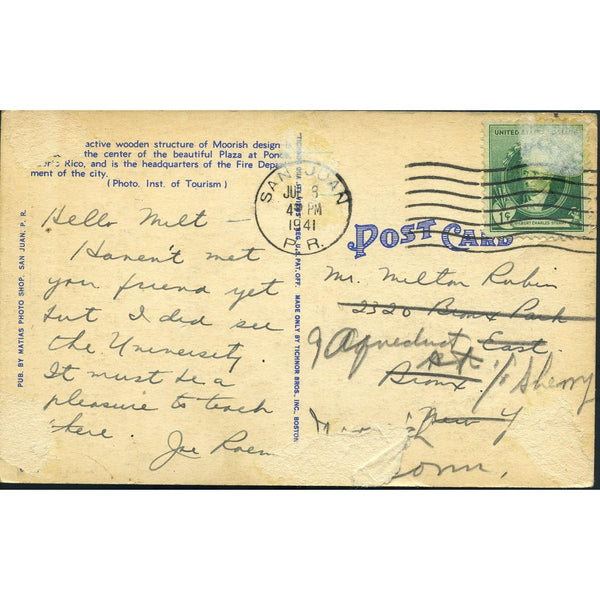 active wooden structure of Moorish design
the center of the beautiful Plaza at Pon
Rico, and is the headquarters of the Fire Depar
ment of the city.
(Photo. Inst. of Tourism)
Hello Milt —
Haven't met
you friend yet
but I did see
the University
It must be a
pleasure to teach
there
Joe
PUB. BY MATIAS PHOTO SHOP. SAN JUAN, P. R.
REG. U.S. PAT. OFF. MADE ONLY BY TICHNOR BROS., INC., BOSTON
SAN JUAN
8
4 PM
1941
P. R.
UNITED STATES POSTAGE
1¢
POST CARD
Mr. Milton Rubin
2320 Bronx Park
9 Aqueduct East
Bronx Sherry
New Y
Conn,